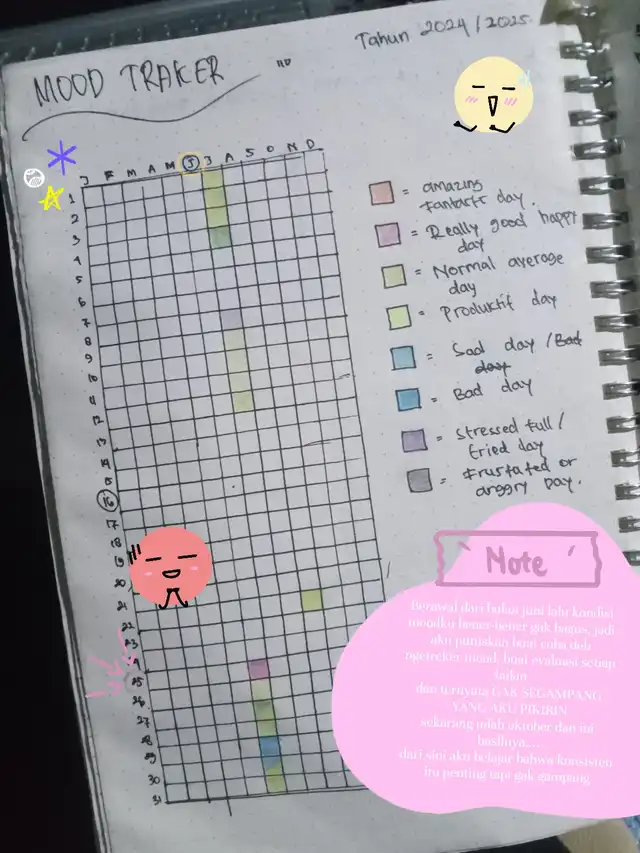 Tahun 2024/2025
MOOD TRAKER
J F M A M J J A S O N D
1
2
3
4
5
6
7
8
9
10
11
12
13
14
15
16
17
18
19
20
21
22
23
24
25
26
27
28
29
30
31
= amazing
fantastic day.
= Really good happy
day
= Normal average
day
= Produktif day
= Sad day / Bad
day
= Bad day
= Stressed full /
tried day
= Frustated or
anggry Day.
Note
Berawal dari bulan juni lalu kondisi
moodku bener-bener gak bagus, jadi
aku putuskan buat coba deh
ngetreker mood buat evaluasi setiap
bulan
dan ternyata GAK SEGAMPANG
YANG AKU PIKIRIN
sekarang udah oktober dan ini
hasilnya....
dari sini aku belajar bahwa konsisten
itu penting tapi gak gampang